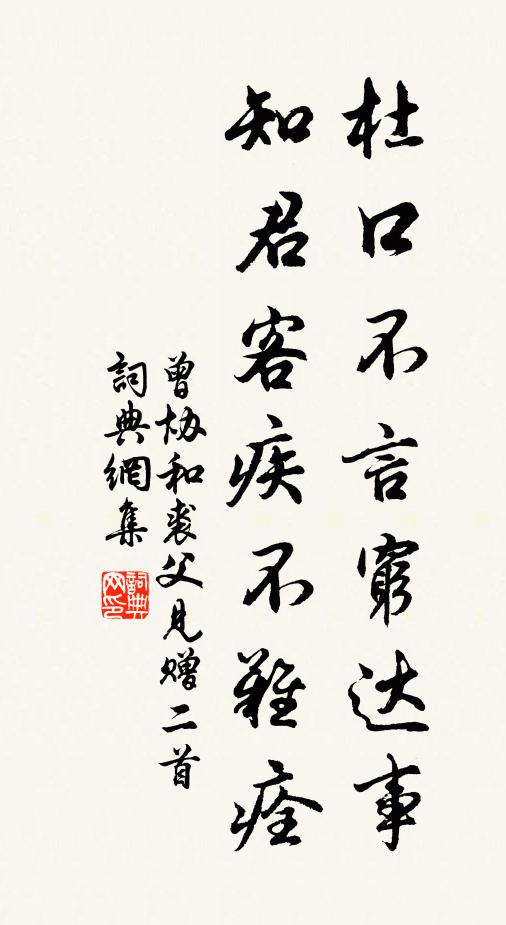 杜口不言窮达事
知君客疾不難痊
曾协和裘父見赠二首
詞典網集
詞典网印